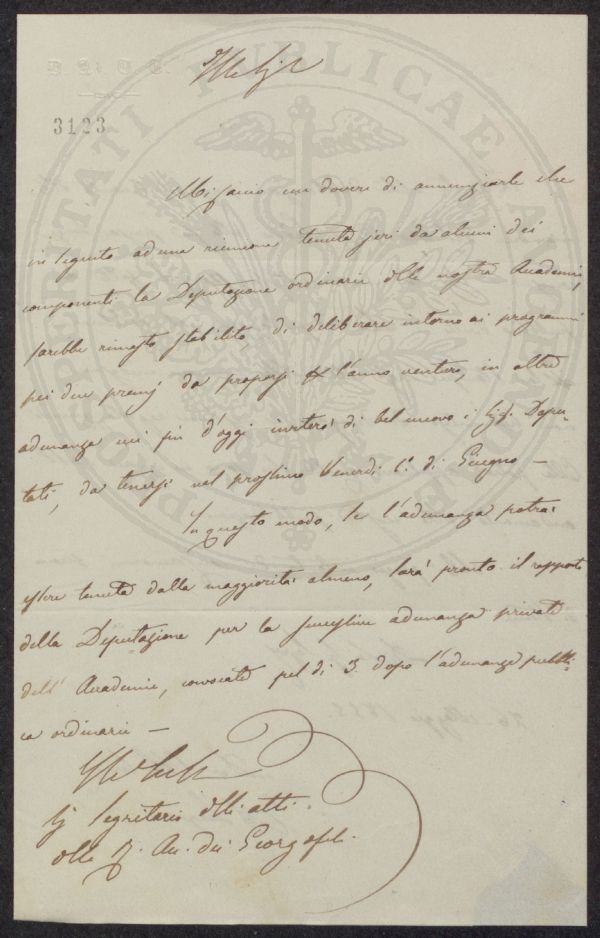 PROSPERITATI PUBLICAE
3123
Mi farò un dovere di annunziarle che
in seguito ad una riunione tenuta jeri da alcuni dei
componenti la Deputazione ordinaria della nostra Accademia,
sarebbe rimasto stabilito, di deliberare intorno ai programmi
pei due premj da proporsi l'anno venturo, in altra
adunanza cui fin d'oggi inviterò di bel nuovo i Depu-
tati, da tenersi nel prossimo Venerdì 1.º di Giugno —
In questo modo, se l'adunanza potrà
essere tenuta dalla maggiorità almeno, sarà pronto il rapporto
della Deputazione per la adunanza privata
dell'Accademia, convocata pel dì 3. dopo l'adunanza pubbli-
ca ordinaria —
Segretario degli atti
della R. Acc. dei Georgofili.